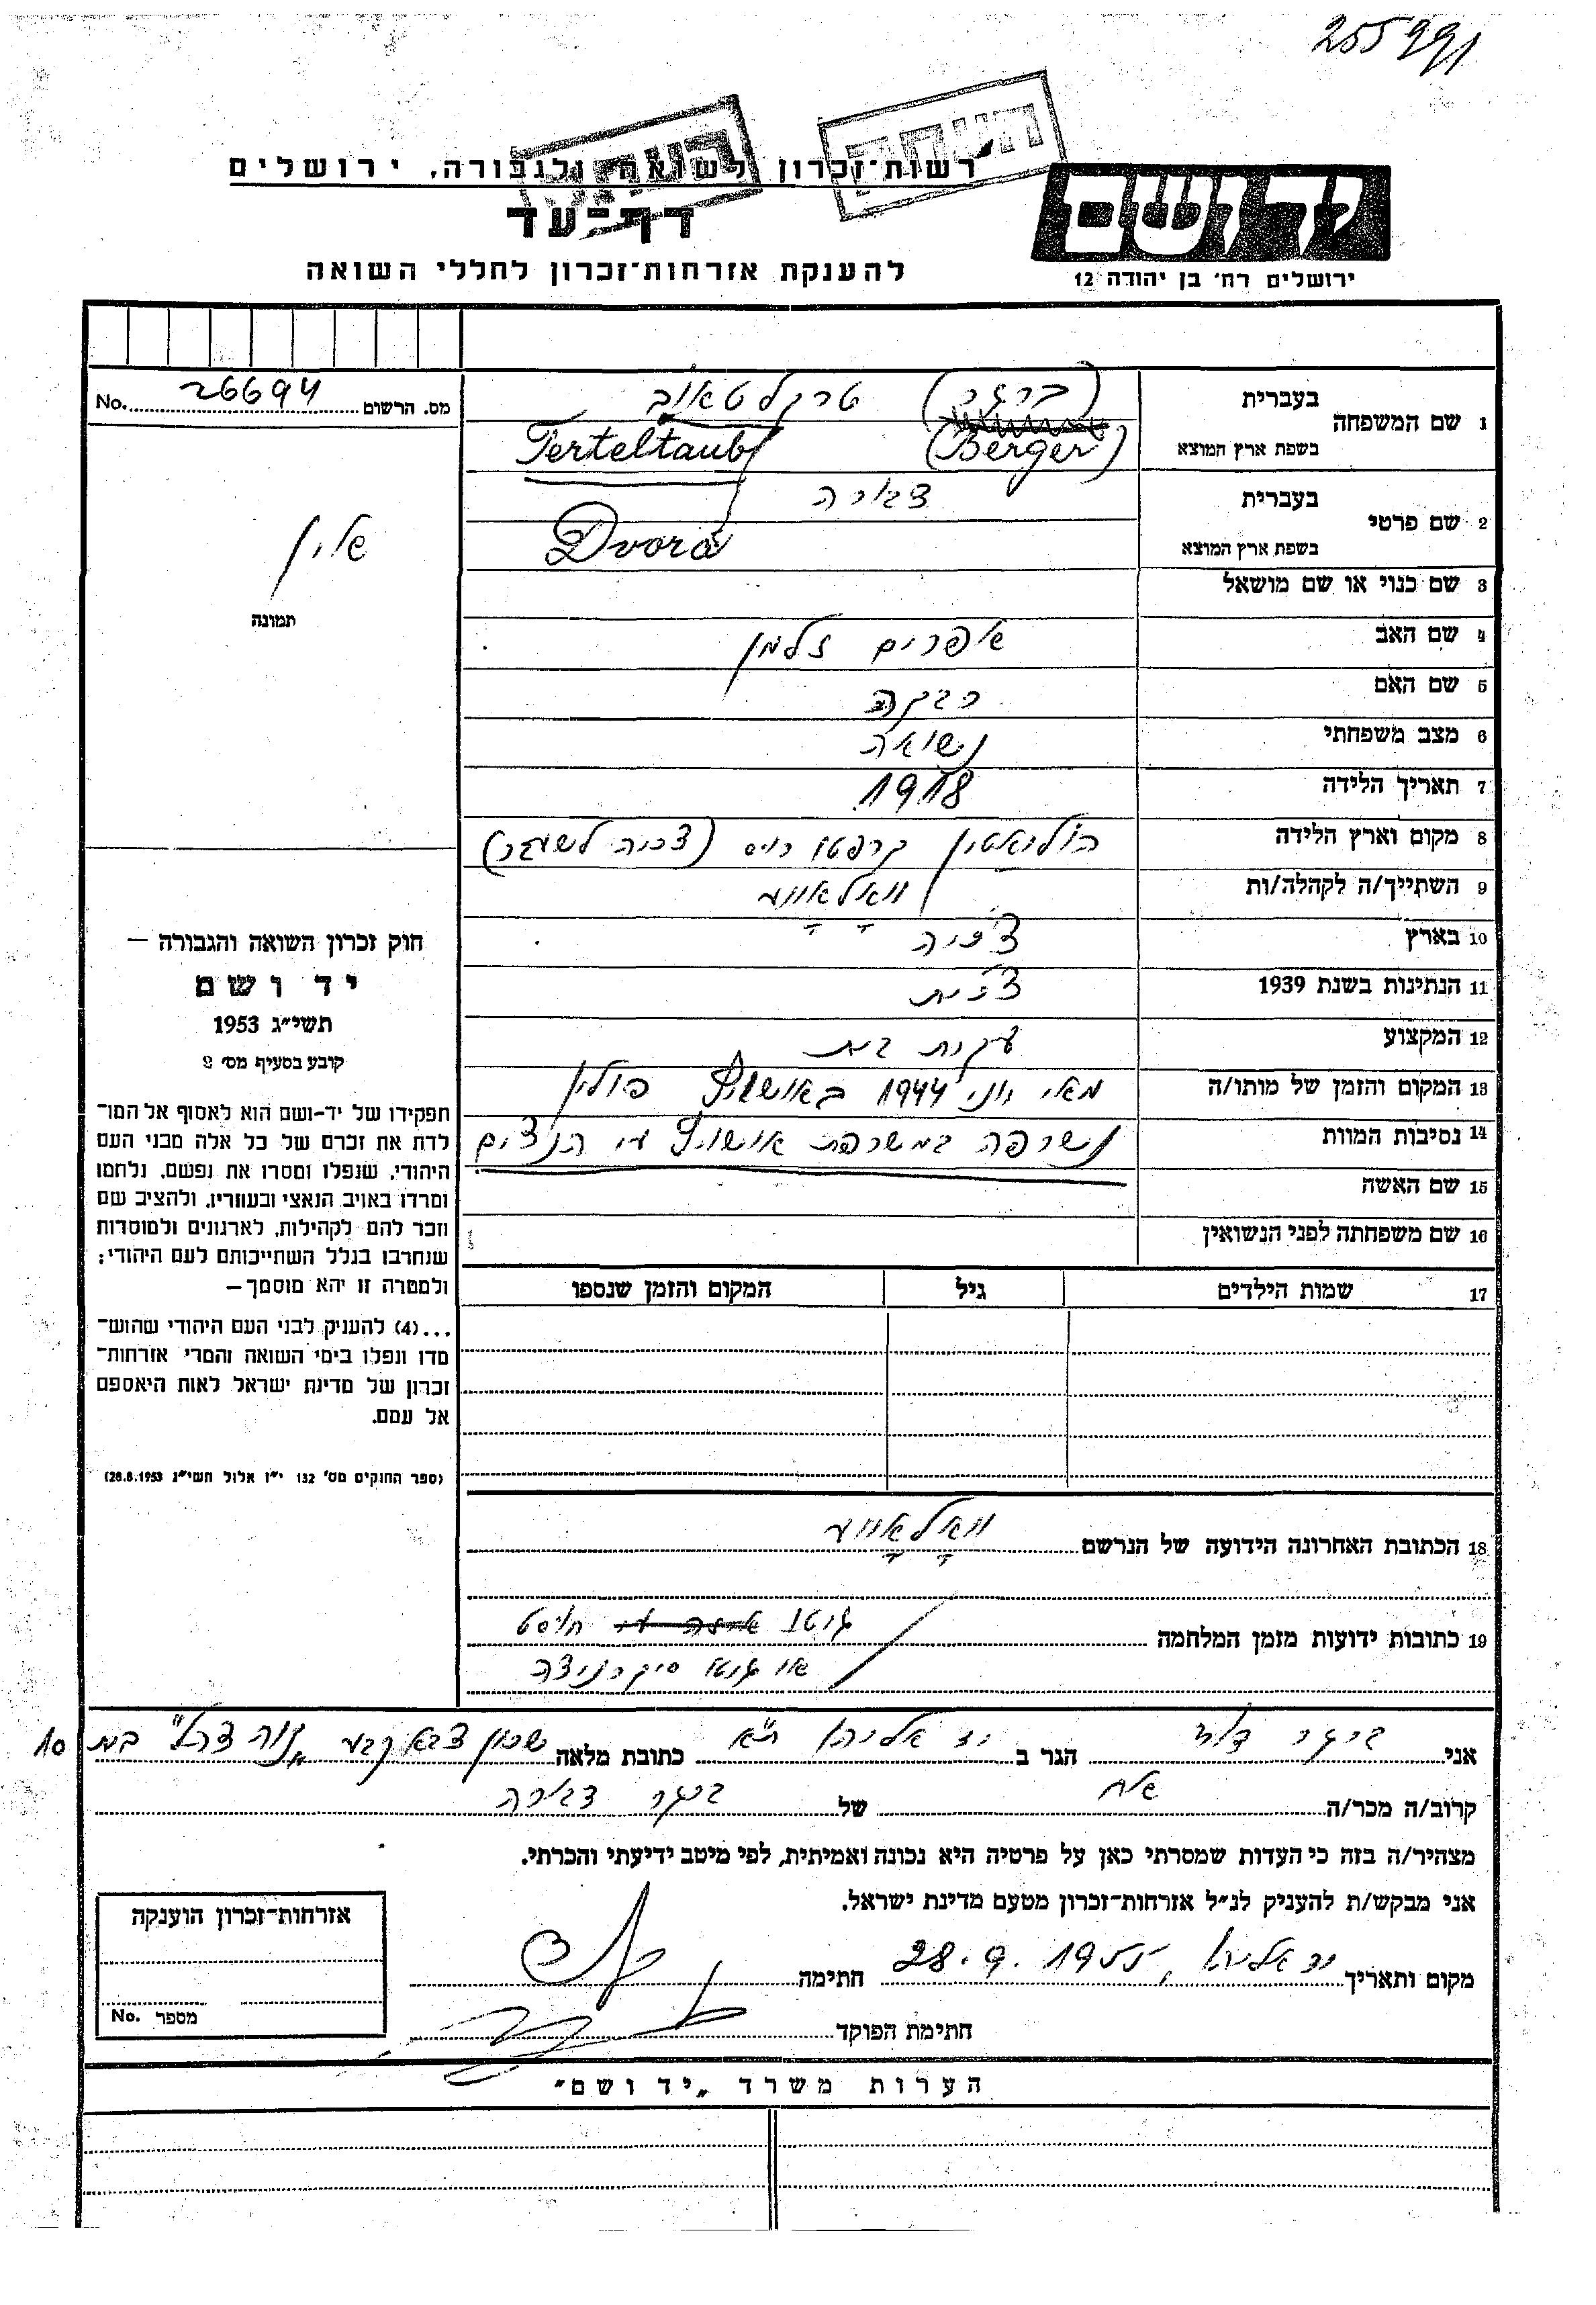 255991
העתק
העתק
רשות־זכרון לשואה ולגבורה, ירושלים
דף־עד
להענקת אזרחות־זכרון לחללי השואה
יד ושם
ירושלים רח' בן יהודה 12
מס. הרשום No. 26694
תמונה
חוק זכרון השואה והגבורה —
יד ושם
תשי״ג 1953
קובע בסעיף מס' 2
תפקידו של יד-ושם הוא לאסוף אל המו־
לדת את זכרם של כל אלה מבני העם
היהודי, שנפלו ומסרו את נפשם, נלחמו
ומרדו באויב הנאצי ובעוזריו, ולהציב שם
וזכר להם לקהילות, לארגונים ולמוסדות
שנחרבו בגלל השתייכותם לעם היהודי;
ולמטרה זו יהא מוסמך —
...(4) להעניק לבני העם היהודי שהוש־
מדו ונפלו בימי השואה והמרי אזרחות־
זכרון של מדינת ישראל לאות היאספם
אל עמם.
(ספר החוקים מס' 132 י״ז אלול תשי״ג 28.8.1953)
1 שם המשפחה
בעברית (ברגר) טרקלטאוב
בשפת ארץ המוצא (Berger) Terteltaub
2 שם פרטי
בעברית דבורה
בשפת ארץ המוצא Dvora
3 שם כנוי או שם מושאל
4 שם האב אפרים זלמן
5 שם האם רבקה
6 מצב משפחתי נשואה
7 תאריך הלידה 1918
8 מקום וארץ הלידה קרפטו רוס (צכיה לשעבר)
9 השתייך/ה לקהלה/ות וואָלאָווע
10 בארץ צ'כיה
11 הנתינות בשנת 1939 צ'כית
12 המקצוע עקרת בית
13 המקום והזמן של מותו/ה מאי יוני 1944 באושויץ פולין
14 נסיבות המוות נשרפה במשרפת אושויץ ע״י הנצים
15 שם האשה
16 שם משפחתה לפני הנשואין
17 שמות הילדים גיל המקום והזמן שנספו
18 הכתובת האחרונה הידועה של הנרשם וואָלאָווע
19 כתובות ידועות מזמן המלחמה גיטו חוסט
או גיטו סיקרניצה
אני ברגר דוד הגר ב יד אליהו ת״א כתובת מלאה שכון צבא קבע „נוה צהל״ בת 10
קרוב/ה מכר/ה אח של ברגר דבורה
מצהיר/ה בזה כי העדות שמסרתי כאן על פרטיה היא נכונה ואמיתית, לפי מיטב ידיעתי והכרתי.
אני מבקש/ת להעניק לנ״ל אזרחות־זכרון מטעם מדינת ישראל.
מקום ותאריך יד אליהו, 28.9.1955 חתימה
חתימת הפוקד
אזרחות־זכרון הוענקה
מספר No.
הערות משרד „יד ושם״